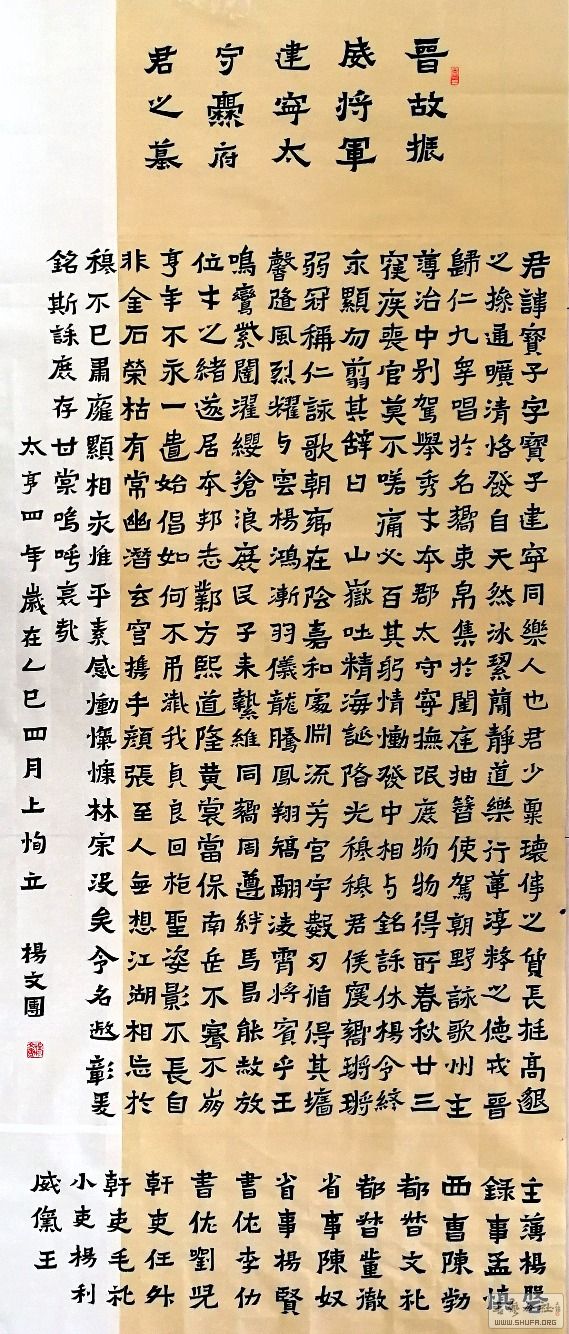 晉故振
威將軍
建寧太
守爨府
君之墓
君諱寶子字寶子建寧同樂人也君少稟瓌偉之質長挺高邈
之操通曠清恪發自天然冰絜簡靜道樂行葦淳粹之德戎晉
歸仁九皋唱於名嚮束帛集於閨庭抽簪俟駕朝野詠歌州主
簿治中別駕舉秀才本郡太守寧撫氓庶物物得所春秋廿三
寢疾喪官莫不嗟痛人百其躬情慟發中相与銘誄休揚令終
永顯勿翦其辭曰 山嶽吐精海誕陷光穆穆君侯震嚮鏘鏘
弱冠稱仁詠歌朝鄉在陰嘉和處淵流芳宮宇數仞循得其牆
馨隨風烈耀与雲揚鴻漸羽儀龍騰鳳翔矯翮凌霄將賓乎王
鳴鸞紫闥濯纓滄浪庶民子來縶維同嚮周遵絆馬曷能赦放
位才之緒遂居本邦志鄴方熙道隆黃裳當保南岳不騫不崩
享年不永一匱始倡如何不弔殲我貞良回抱聖姿影不長自
非金石榮枯有常幽潛玄宮攜手顏張至人無想江湖相忘於
穆不已肅雍顯相永惟平素感慟愾慷林宗沒矣令名遐彰爰
銘斯誄庶存甘棠嗚呼哀哉
太亨四年歲在乙巳四月上恂立 楊文團
主簿楊磐
錄事孟慎
西曹陳勃
都督文礼
都督董徹
省事陳奴
省事楊賢
書佐李仂
書佐劉兒
幹吏任升
幹吏毛礼
小吏楊利
威儀王
WWW.SHUFA.ORG